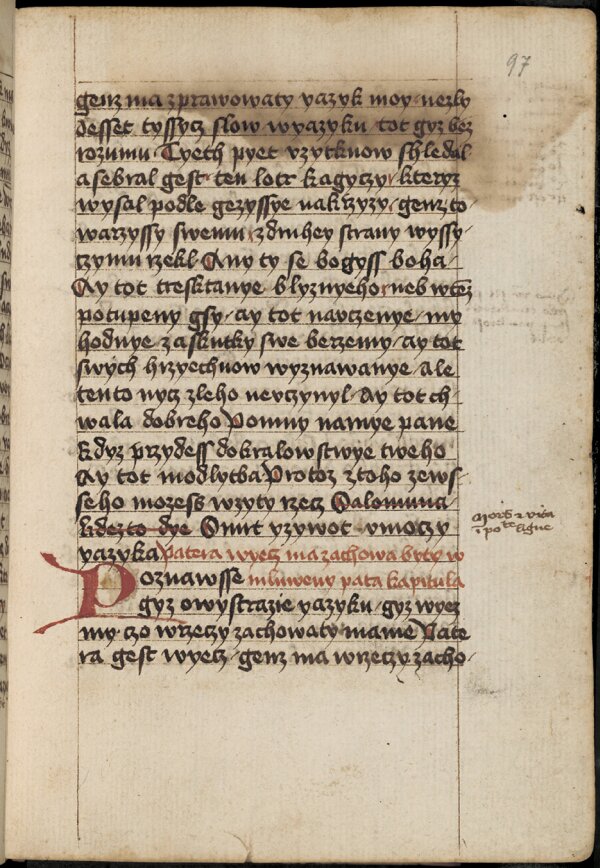 97
genz ma zprawowaty yazyk moy · nezly
desset tyssycz slow wyazyku tot gyz bez
rozumu · Tyech pyet vzytkuow shledal
a sebral gest ten lotr kagyczy · kteryz
wysal podle gezyssye nakrzyzy · genz to
warzyssy swemu z druhey strany wyssy
czymu rzekl Any ty se bogyss boha ·
Ay tot tresktanye blyznyeho · neb wtez
potupeny gsy · ay tot navczenye · my
hodnye zaskutky swe berzemy · ay tot
swych hrzyechuow wyznawanye ale
tento nycz zleho nevczynyl · Ay tot ch
wala dobreho Pomny namye pane
kdyz przydess dokralowstwye tweho
Ay tot modlytba Protoz ztoho zews
seho mozess wzyty rzecz Salomuna
kdezto dye Smrt yzywot vmoczy
yazyka Patera wyecz ma zachowa byty w
Poznawsse mluweny pata kapitula
gyz owystrazie yazyku · gyz wyez
my · czo wrzeczy zachowaty mame Pate
ra gest wyecz · genz ma wrzeczy zacho ·